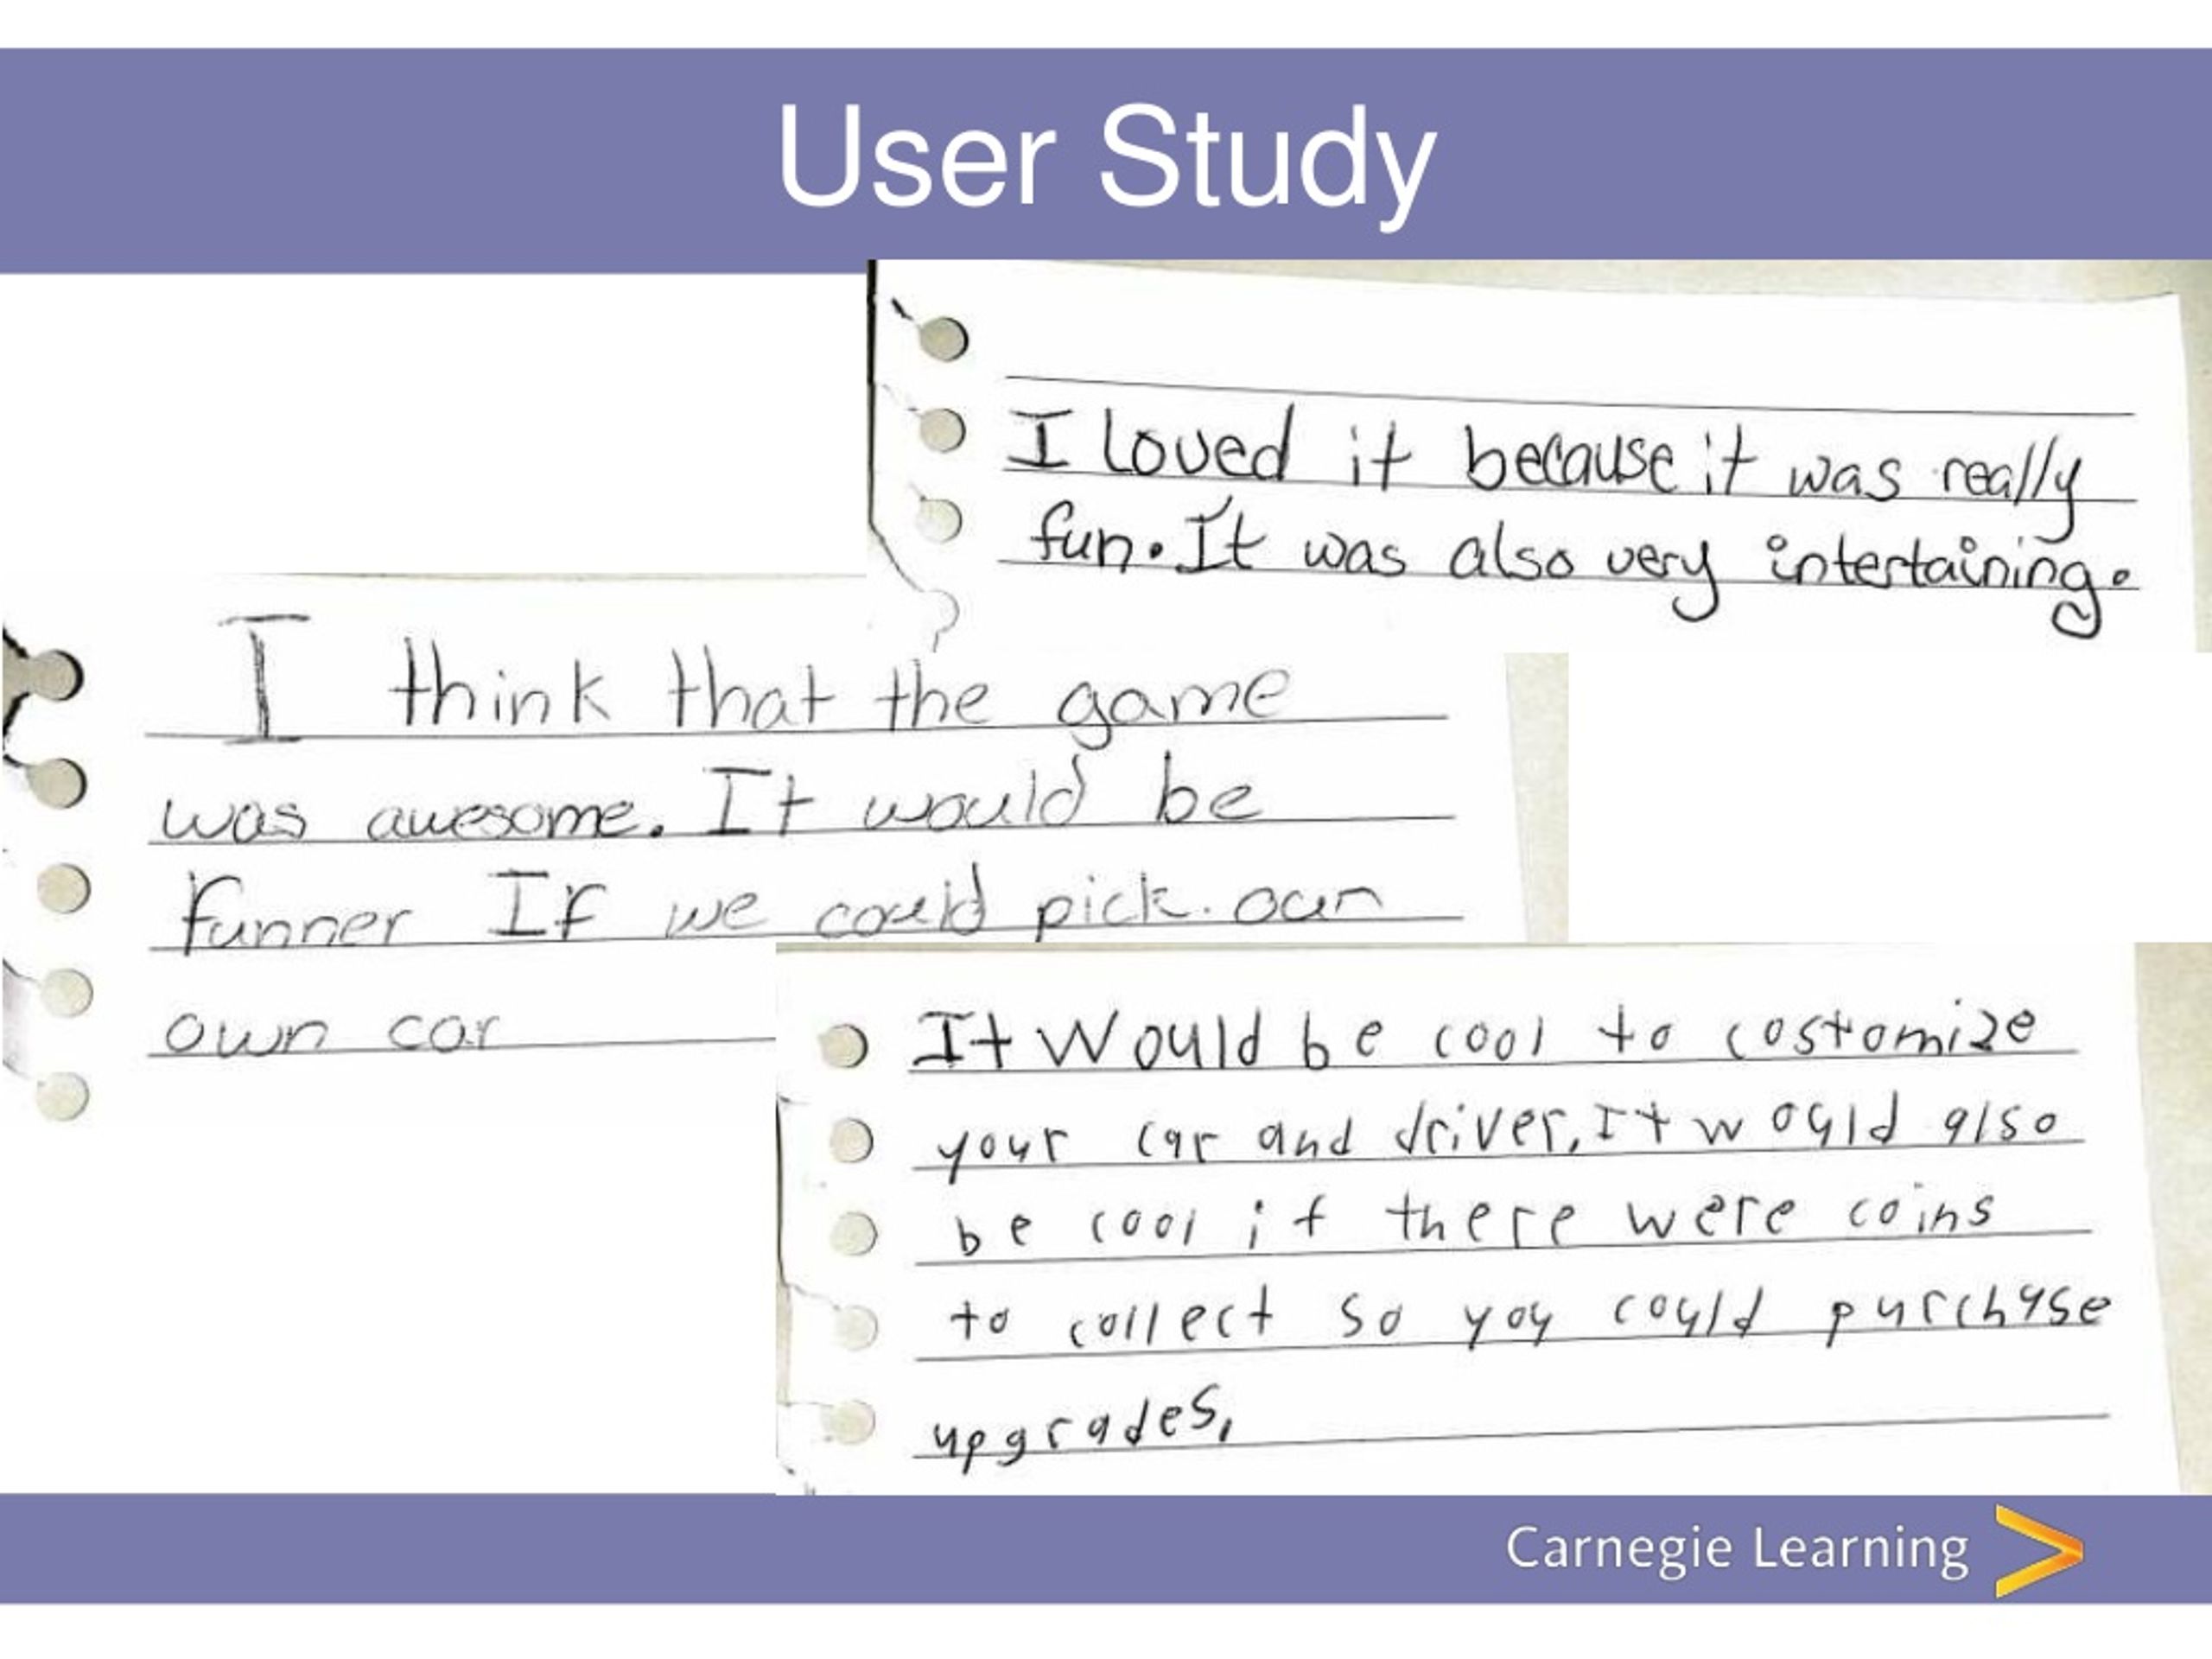 User Study
I loved it because it was really
fun. It was also very intertaining.
I think that the game
was awesome. It would be
funner If we could pick our
own car
It Would be cool to costomize
your car and driver, It would also
be cool if there were coins
to collect so you could purchase
upgrades,
Carnegie Learning